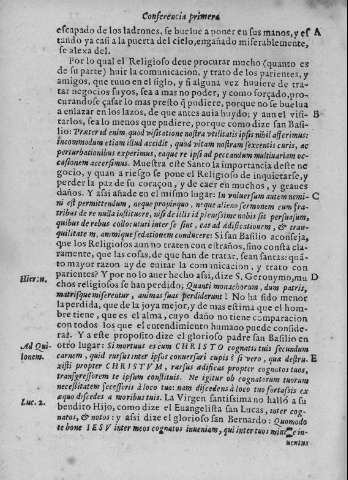 Conferencia primera
escapado de los ladrones, se buelue a poner en sus manos, y es A
tando ya casi a la puerta del cielo, engañado miserablemente,
se alexa del.
Por lo qual el Religioso deue procurar mucho (quanto es
de su parte) huir la comunicacion, y trato de los parientes, y
amigos, que tuuo en el siglo, y si alguna vez huuiere de tra-
tar negocios suyos, sea a mas no poder, y como forçado, pro-
curandose çafar lo mas presto q̃ pudiere, porque no se buelua
a enlazar en los lazos, de que antes auia huydo; y aun el visi- B
tarlos, sea lo menos que pudiere, porque como dize san Basi-
lio: Præter id enim quod visitatione nostra vtilitatis ipsis nihil afferimus:
incommodum etiam illud accidit, quod vitam nostram sexcentis curis, ac
perturbationibus replerimus, eaque re ipsa ad peccandum multiuariam oc-
casionem accersimus. Muestra este Santo la importancia deste ne
gocio, y quan a riesgo se pone el Religioso de inquietarse, y
perder la paz de su coraçon, y de caer en muchos, y graues
daños. Y assi añade en el mismo lugar: In vniuersum autem nemi- C
ni est permittendum, neque propinquo, neque alieno sermonem cum fra-
tribus de re nulla instituere, nisi de illis id plenissime nobis sit persuasum,
quibus de rebus collocuturi inter se sint, eas ad ædificationem, & tran-
quilitatem, animique sedationem conducere: Si san Basilio aconseja,
que los Religiosos aun no traten con estraños, sino consta cla-
ramente, que las cosas, de que han de tratar, sean santas: quã-
to mayor razon ay de euitar la comunicacion, y trato con
parientes? Y por no lo auer hecho assi, dize S. Geronymo, mu D
Hieron. chos religiosos se han perdido, Quanti monachorum, dum patris,
matrisque miserentur, animas suas perdiderunt! No ha sido menor
la perdida, que de la joya mejor, y de mas estima que el hom-
bre tiene, que es el alma, cuyo daño no tiene comparacion
con todos los que el entendimiento humano puede conside-
rar. Y a este proposito dize el glorioso padre san Basilio en
Ad Qui- otro lugar: Si mortuus es cum CHRISTO cognatis tuis secundum
lonem. carnem, quid rursus inter ipsos conuersari cupis? si vero, qua destru- E
xisti propter CHRISTVM, rursus ædificas propter cognatos tuos,
transgressorem te ipsum constituis. Ne igitur ob cognatorum tuorum
necessitatem secesseris à loco tuo: nam discedens à loco tuo fortasis ex
æquo discedes a moribus tuis. La Virgen santissima no hallò a su
Luc. 2. bendito Hijo, como dize el Euangelista san Lucas, inter cog-
natos, & notos: y assi dize el glorioso san Bernardo: Quomodo
te bone IESV inter meos cognatos inueniam, qui inter tuos minime in-
uentus